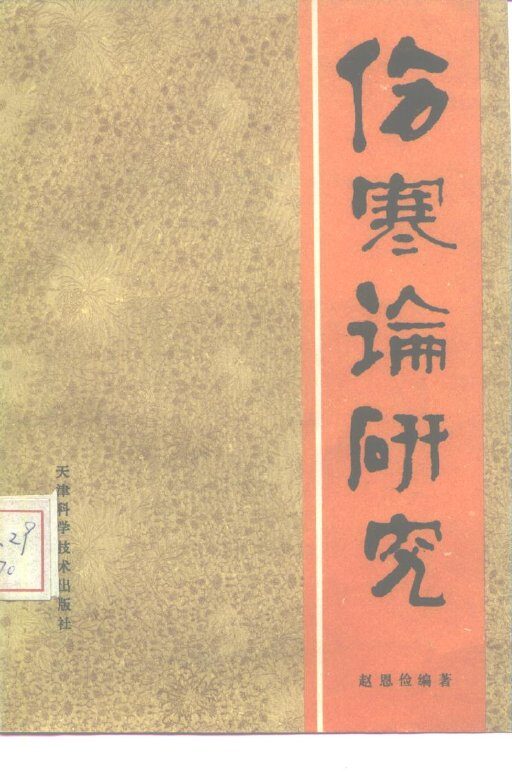 伤寒论研究
赵恩俭编著
天津科学技术出版社
.29
70